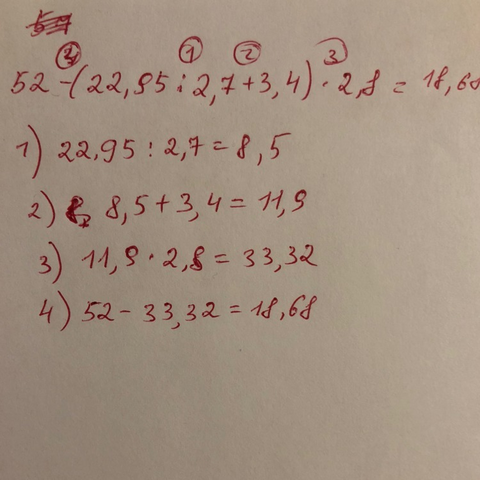 ④ ① ② ③
52 - (22,95 : 2,7 + 3,4) · 2,8 = 18,68
1) 22,95 : 2,7 = 8,5
2) 8,5 + 3,4 = 11,9
3) 11,9 · 2,8 = 33,32
4) 52 - 33,32 = 18,68